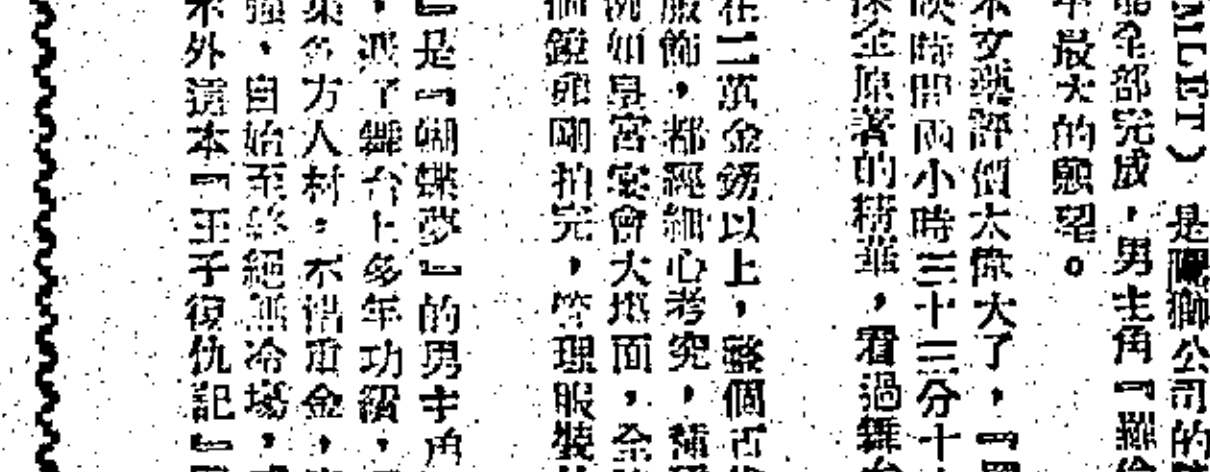 MLET）是鷹獅公司的
能全部完成，男主角『羅倫
年最大的願望。
本文藝評價太偉大了，『
映時間兩小時三十三分十
深全原著的精華，看過舞台
在二萬金鎊以上，整個古
服飾，都經細心考究，種種
例如皇宮宴會大場面，全
個鏡頭剛拍完，管理服裝
』是『蝴蝶夢』的男主角
，演了舞台上多年功績，
集各方人材，不惜重金，
強，自始至終絕無冷場，
不外這本『王子復仇記』